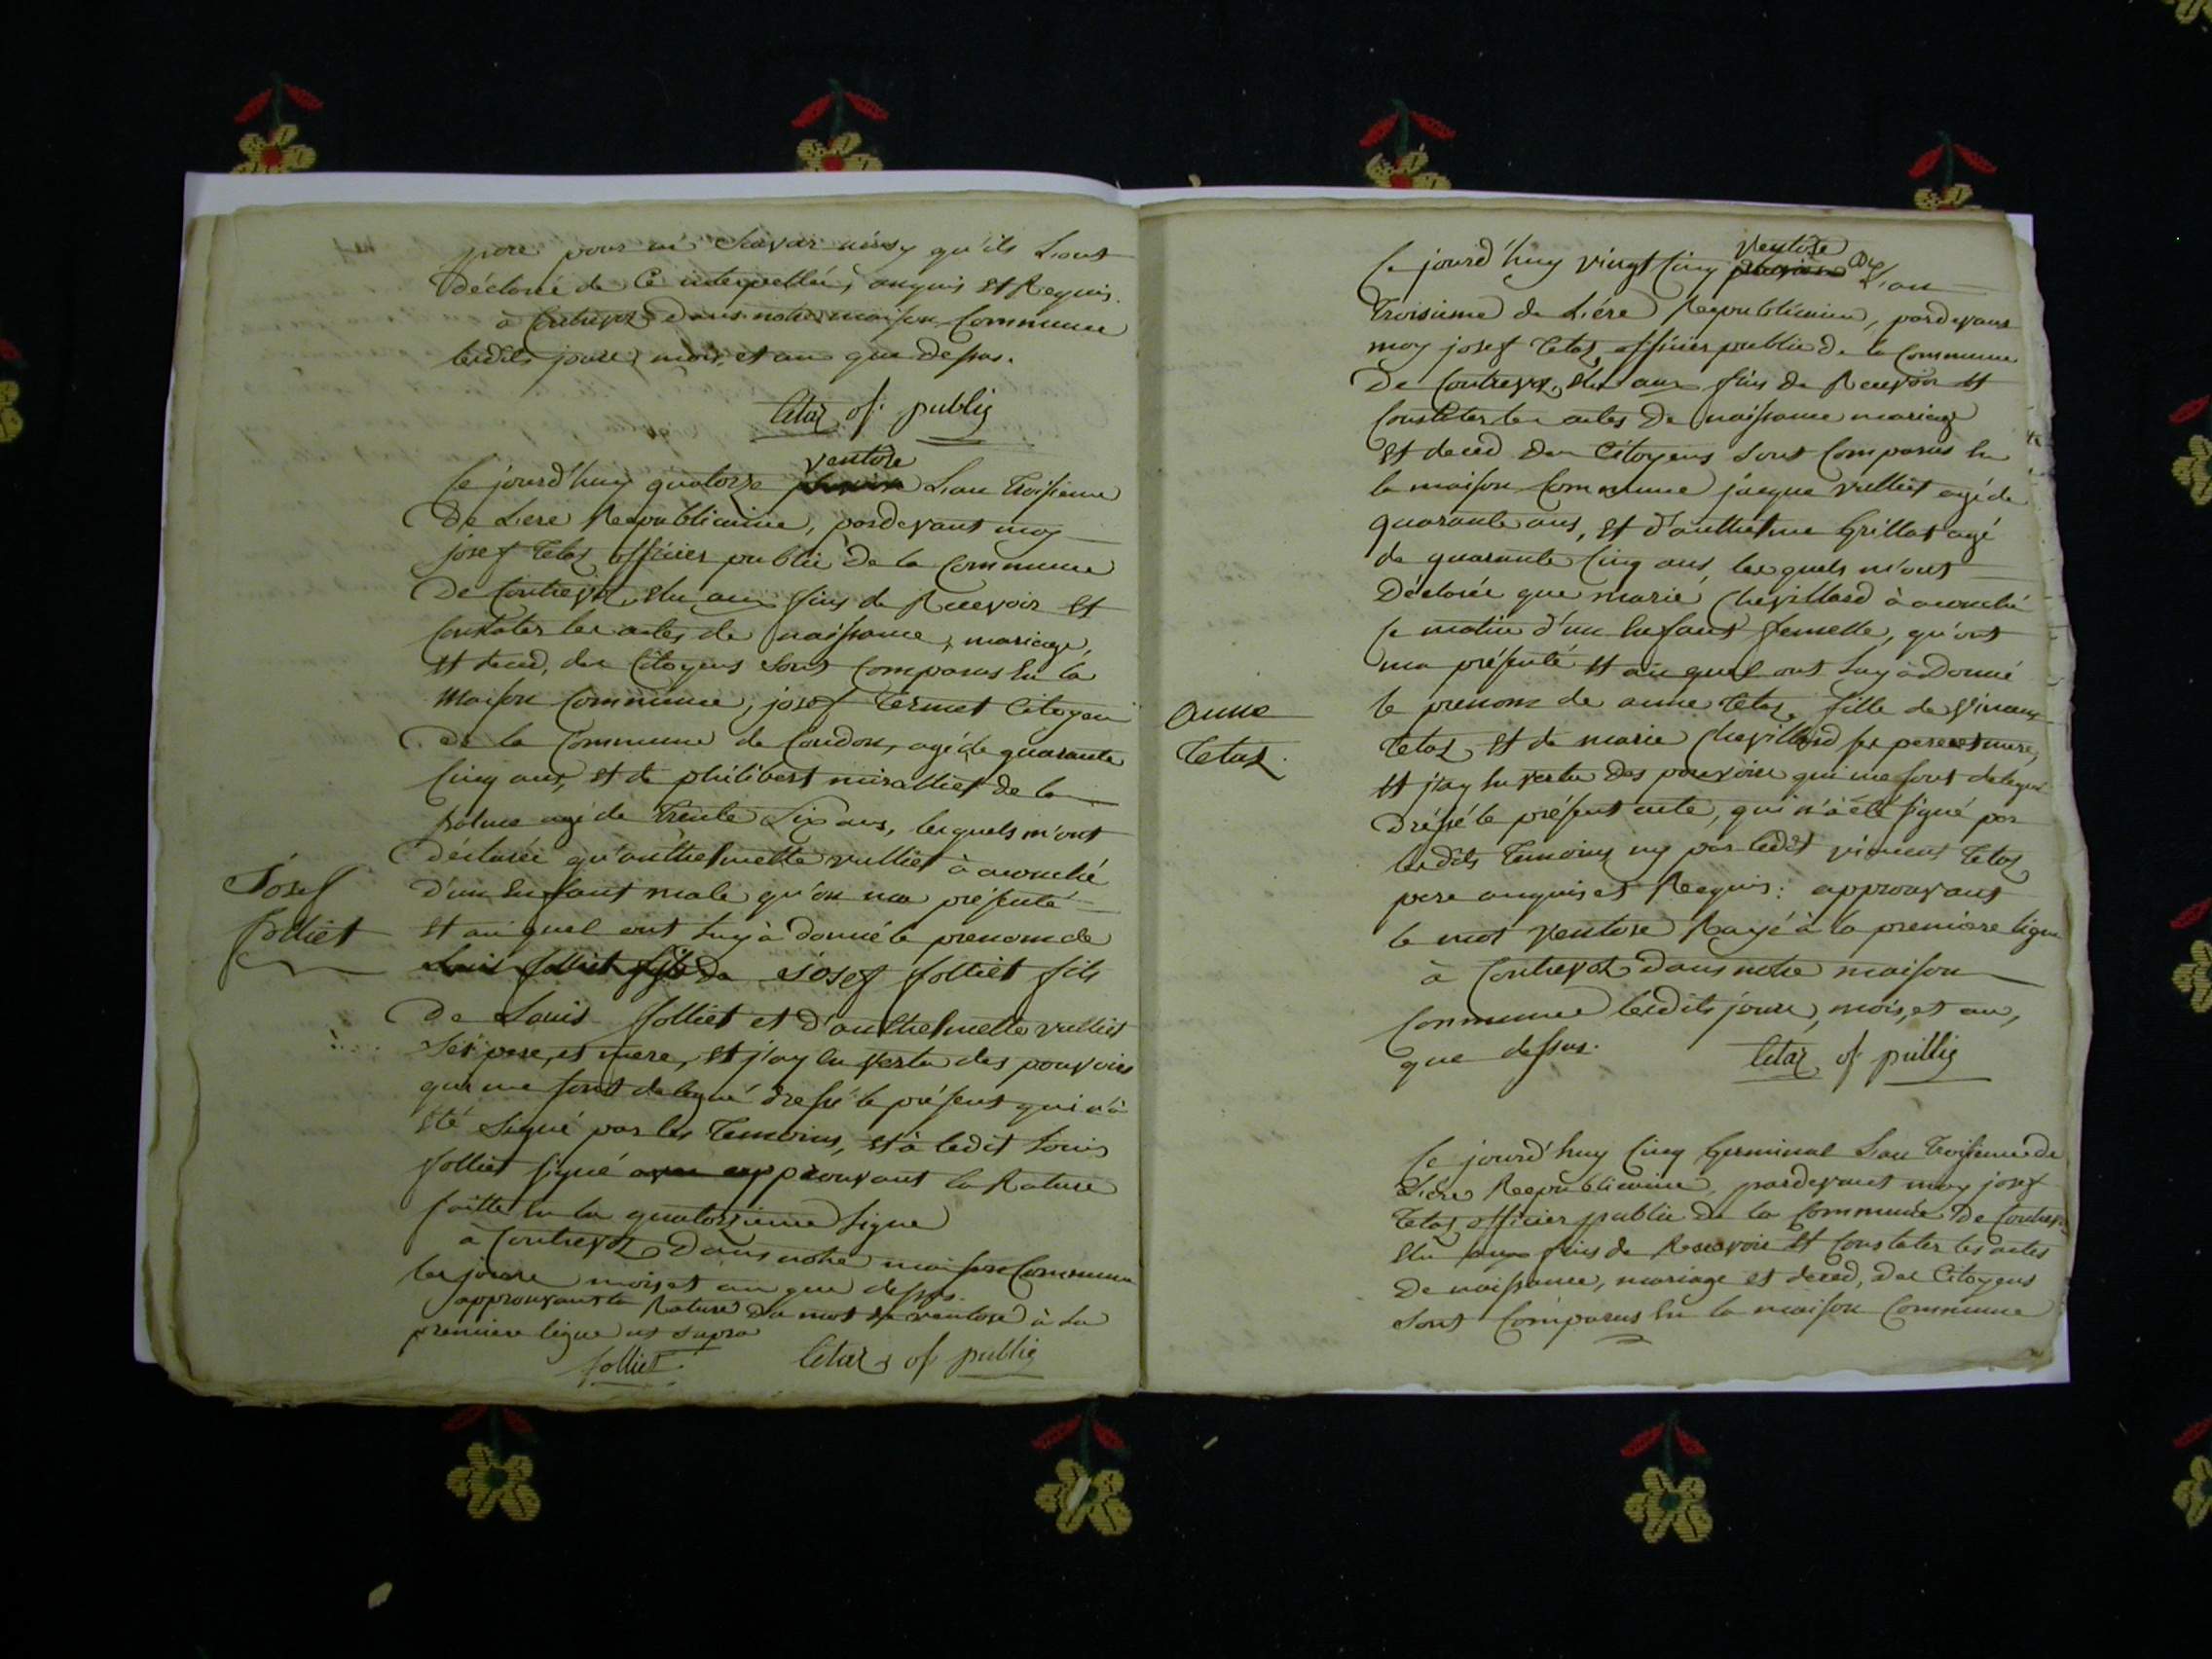 pere pour ne Scavoir ainsy qu'ils L'ont
déclaré de Ce interpellés, enquis Et Requis.
à Contrevoz Dans notre maison Commune
lesdits jours, mois, et an que dessus.
tetaz of. public
ventose
Ce jourd'huy quatorze L'an troisieme
De L'ere Republicaine, pardevant moy
josef tetaz officier public De la Commune
De Contrevoz, Elu aux fins de Recevoir Et
Constater les actes de naissance, mariage,
Et deced, des Citoyens sont Comparus En la
Maison Commune, josef termet Citoyen
De la Commune de Condon, agé de quarante
Cinq ans, et de philibert miralliet de la
balme agé de trente Six ans, lesquels m'ont
déclarée qu'anthelmette vulliet à acouché
D'un Enfant male qu'on ma présenté
Et au quel ont luy à donné le prenom de
Josef
folliet
Louis folliet fils de Josef folliet fils
De Louis folliet et d'anthelmette vulliet
Sés pere, et mere, Et j'ay En vertu des pouvoirs
qui me sont delegué dressé le présent qui n'à
Eté Signé par les temoins, Et à ledit Louis
folliet signé approuvant la Rature
faitte En la quatorzieme Ligne
à Contrevoz Dans notre maison Commune
les jours mois et an que dessus.
approuvant la Rature Du mot ventose à La
premiere ligne ut supra
folliet. tetaz of public
ventose
Ce jourd'huy vingt Cinq De L'an
troisieme de L'ére Republicaine, pardevant
moy josef tetaz, officier public De la Commune
De Contrevoz, Elu aux fins de Recevoir Et
Constater les actes De naissance mariage
Et deced Des Citoyens sont Comparus En
la maison Commune jacque vulliet agé de
quarante ans, Et d'anthelme Grillat agé
de quarante Cinq ans, lesquels m'ont
Déclarée que marie Chevillard à acouché
Ce matin d'un Enfant femelle, qu'ont
ma présenté Et au quel ont luy à Donné
Anne
Tetaz.
le prenom de anne tetaz, fille de vincent
tetaz, Et de marie Chevillard ses pere et mere,
Et j'ay En vertu Des pouvoirs qui me sont delegué
Dréssé le présent acte, qui n'à été signé par
lesdits temoins ny par ledit vincent tetaz
pere enquis et Requis: approuvant
le mot ventose Rayé à la premiere ligne
à Contrevoz Dans notre maison
Commune lesdits jours, mois, et an,
que dessus. tetaz of public
Ce jourd'huy Cinq Germinal L'an troisieme de
L'ére Republicaine, pardevant moy josef
tetaz officier public De la Commune De Contrevoz
Elu aux fins de Recevoir Et Constater les actes
De naissance, mariage et deced, Des Citoyens
sont Comparus En la maison Commune